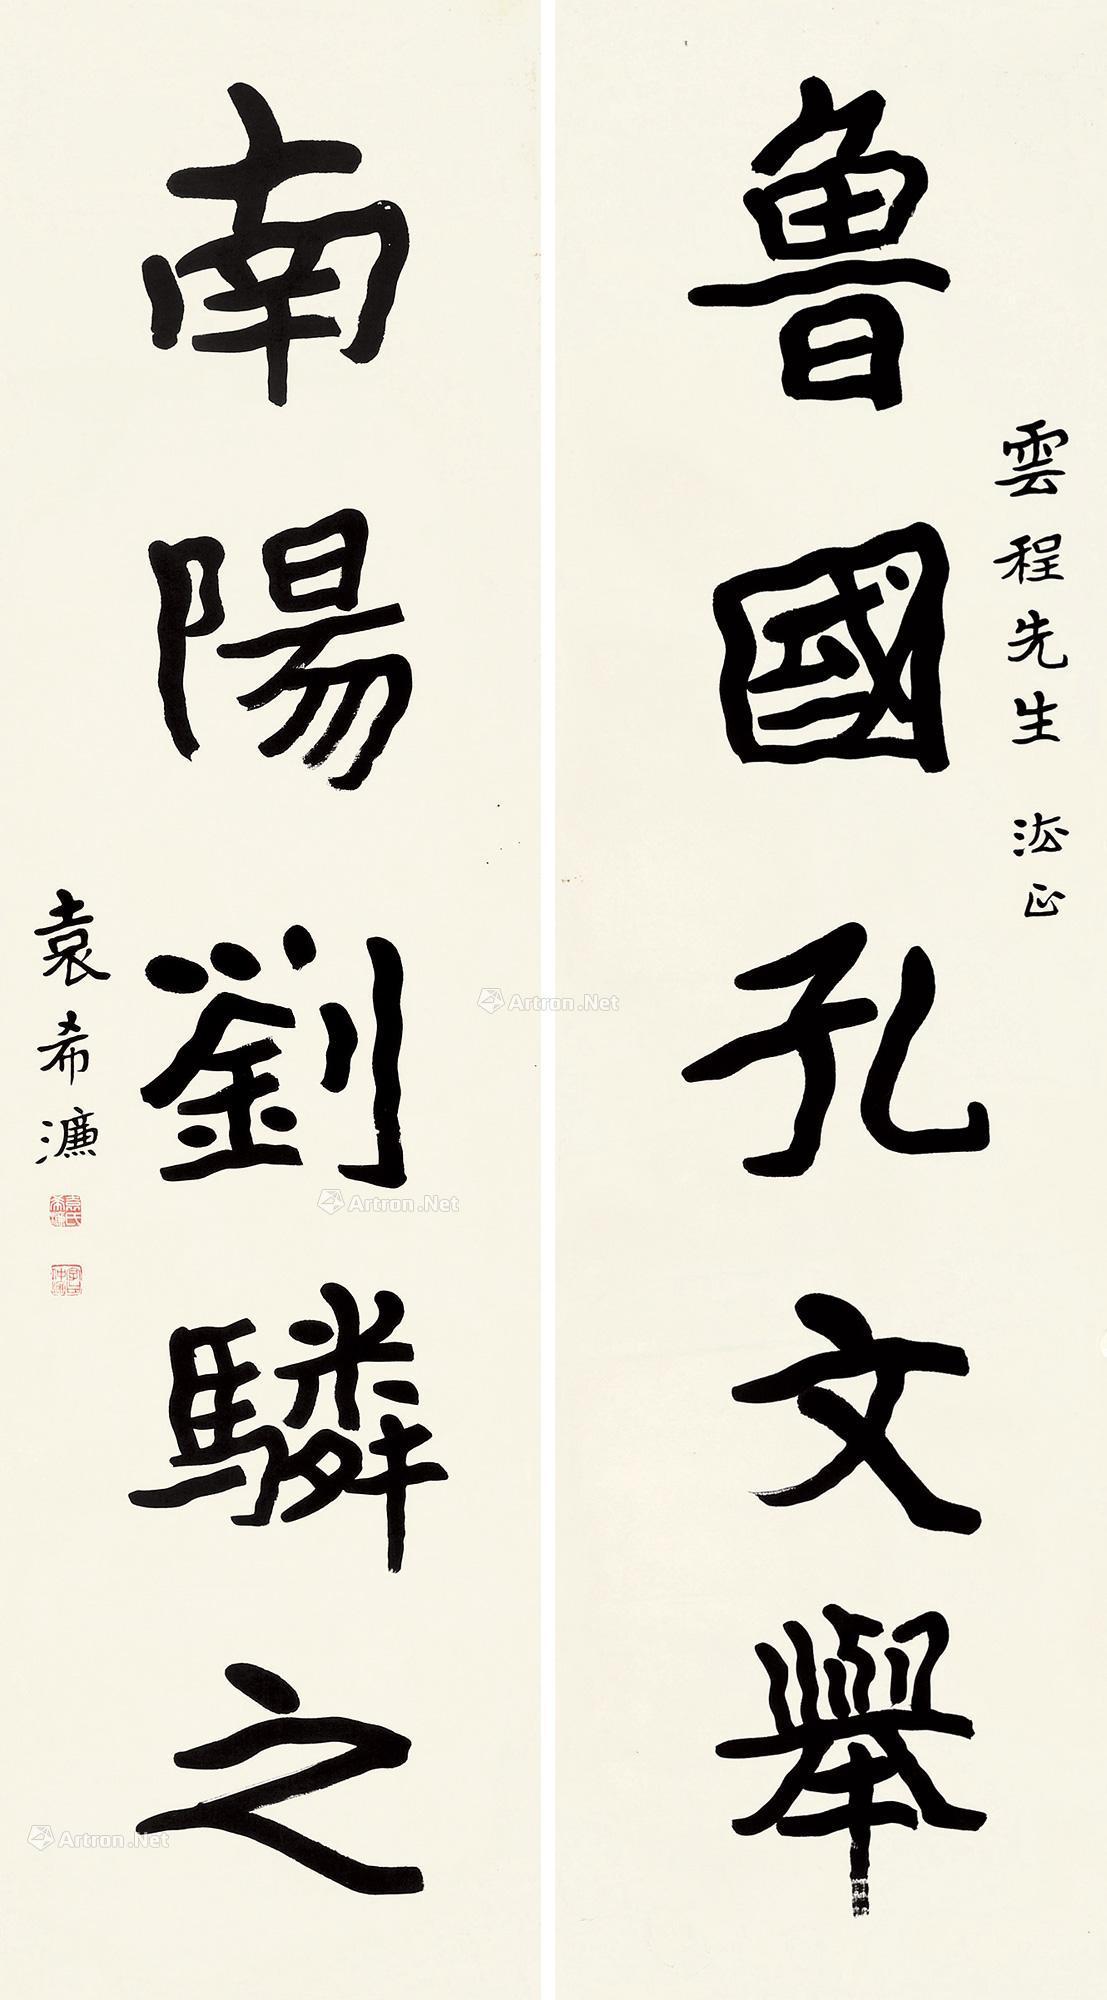 雲程先生 法正
魯國孔文舉
南陽劉驎之
袁希濂
Artron.Net
Artron.Net
Artron.Net